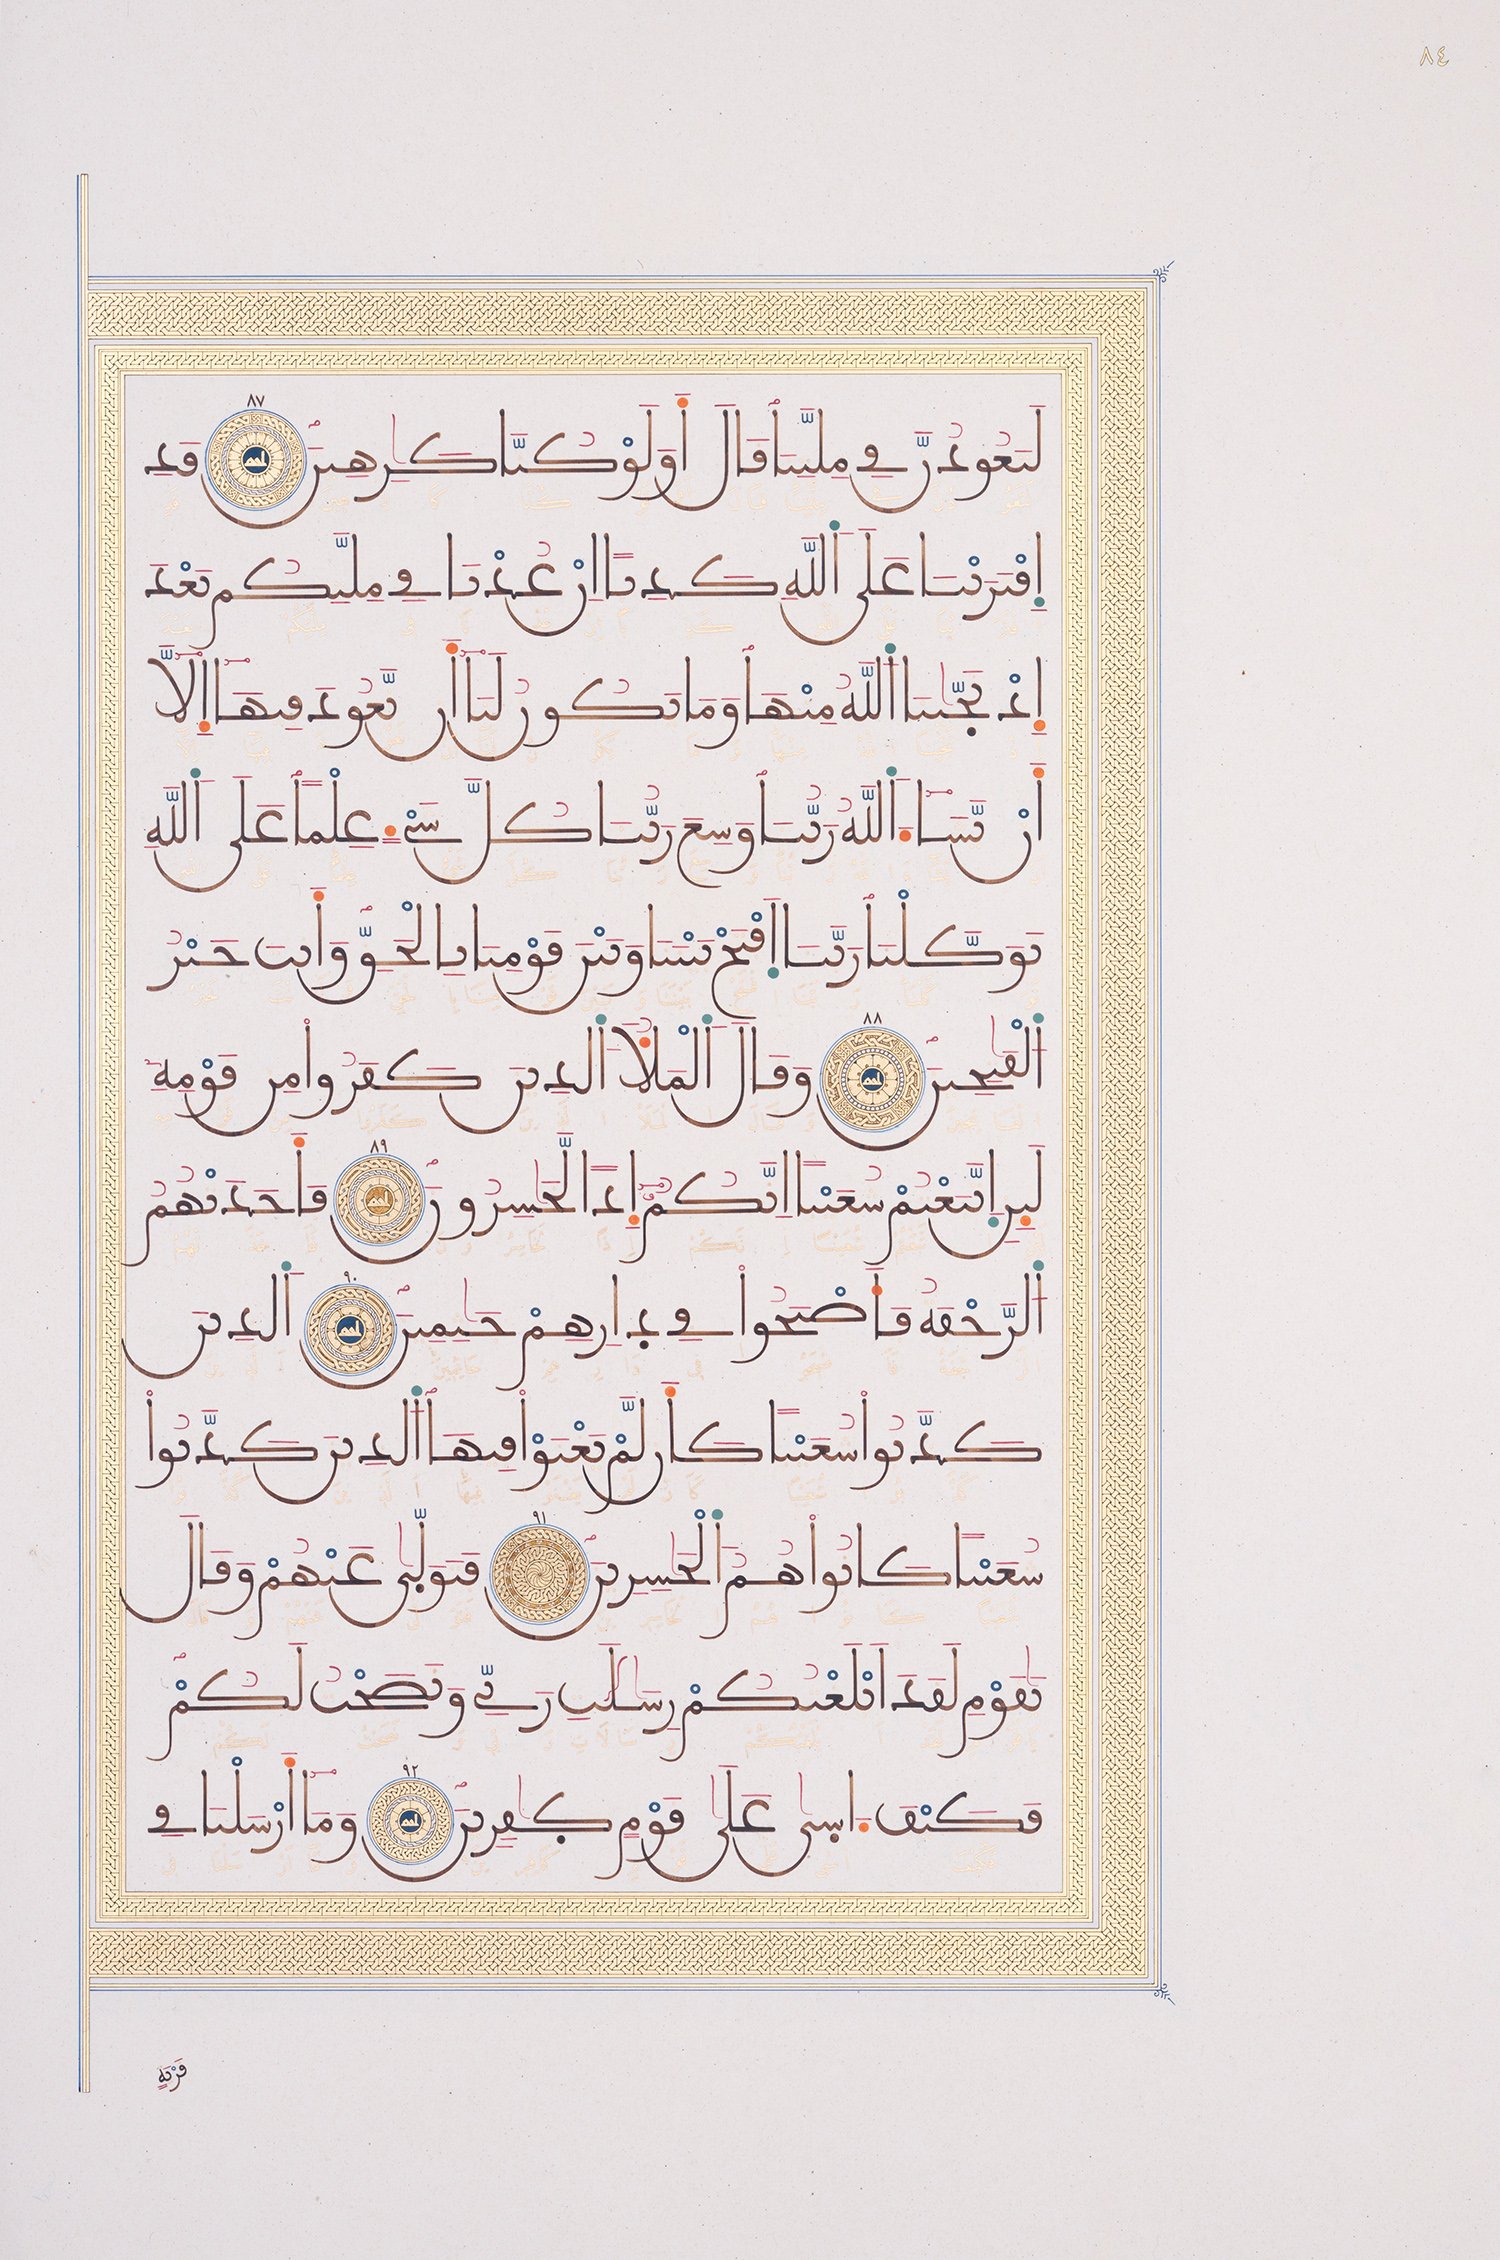 ٨٤
لَتَعُودُنَّ فِي مِلَّتِنَا قَالَ أَوَلَوْ كُنَّا كَٰرِهِينَ ٨٧ قَدِ
اِفْتَرَيْنَا عَلَى اَللَّهِ كَذِباً اِنْ عُدْنَا فِي مِلَّتِكُم بَعْدَ
إِذْ نَجَّىٰنَا اَللَّهُ مِنْهَا وَمَا يَكُونُ لَنَا أَن نَّعُودَ فِيهَا إِلَّا
أَنْ يَّشَاءَ اَللَّهُ رَبُّنَا وَسِعَ رَبُّنَا كُلَّ شَيْءٍ عِلْماً عَلَى اَللَّهِ
تَوَكَّلْنَا رَبَّنَا اَفْتَحْ بَيْنَنَا وَبَيْنَ قَوْمِنَا بِالْحَقِّ وَأَنتَ خَيْرُ
اَلْفَٰتِحِينَ ٨٨ وَقَالَ اَلْمَلَأُ اَلذِينَ كَفَرُوا مِن قَوْمِهِ
لَئِنِ اِتَّبَعْتُمْ شُعَيْباً اِنَّكُمْ إِذاً لَّخَٰسِرُونَ ٨٩ فَأَخَذَتْهُمُ
اَلرَّجْفَةُ فَأَصْبَحُوا فِي دِارِهِمْ جَٰثِمِينَ ٩٠ اَلذِينَ
كَذَّبُوا شُعَيْباً كَأَن لَّمْ يَغْنَوْا فِيهَا اَلذِينَ كَذَّبُوا
شُعَيْباً كَانُوا هُمُ اَلْخَٰسِرِينَ ٩١ فَتَوَلَّىٰ عَنْهُمْ وَقَالَ
يَٰقَوْمِ لَقَدَ اَبْلَغْتُكُمْ رِسَٰلَٰتِ رَبِّي وَنَصَحْتُ لَكُمْ
فَكَيْفَ ءَاسِىٰ عَلَىٰ قَوْمٍ كِٰفِرِينَ ٩٢ وَمَا أَرْسَلْنَا فِي
قَرْيَةٍ